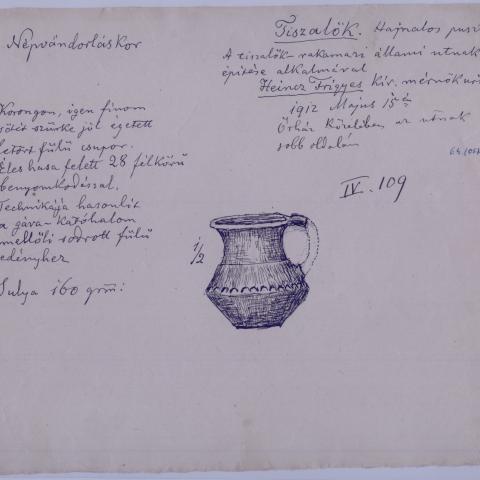 Népvándorláskor
Korongon, igen finom
sötét szürke jól égetett
letört fülű csupor.
Éles hasa felett 28 félkörű
benyomkodással.
Technikája hasonlít
a gáva-katóhalom
mellőli sodrott fülű
edényhez
Sulya 160 grm:
Tiszalök. Hajnalos pusz
A tiszalök-rakamazi állami utnak
építése alkalmával
Heincz Frigyes kir. mérnök
1912 Majus 15 én
Őrház közelében az utnak
jobb oldalán
IV. 109
1/2